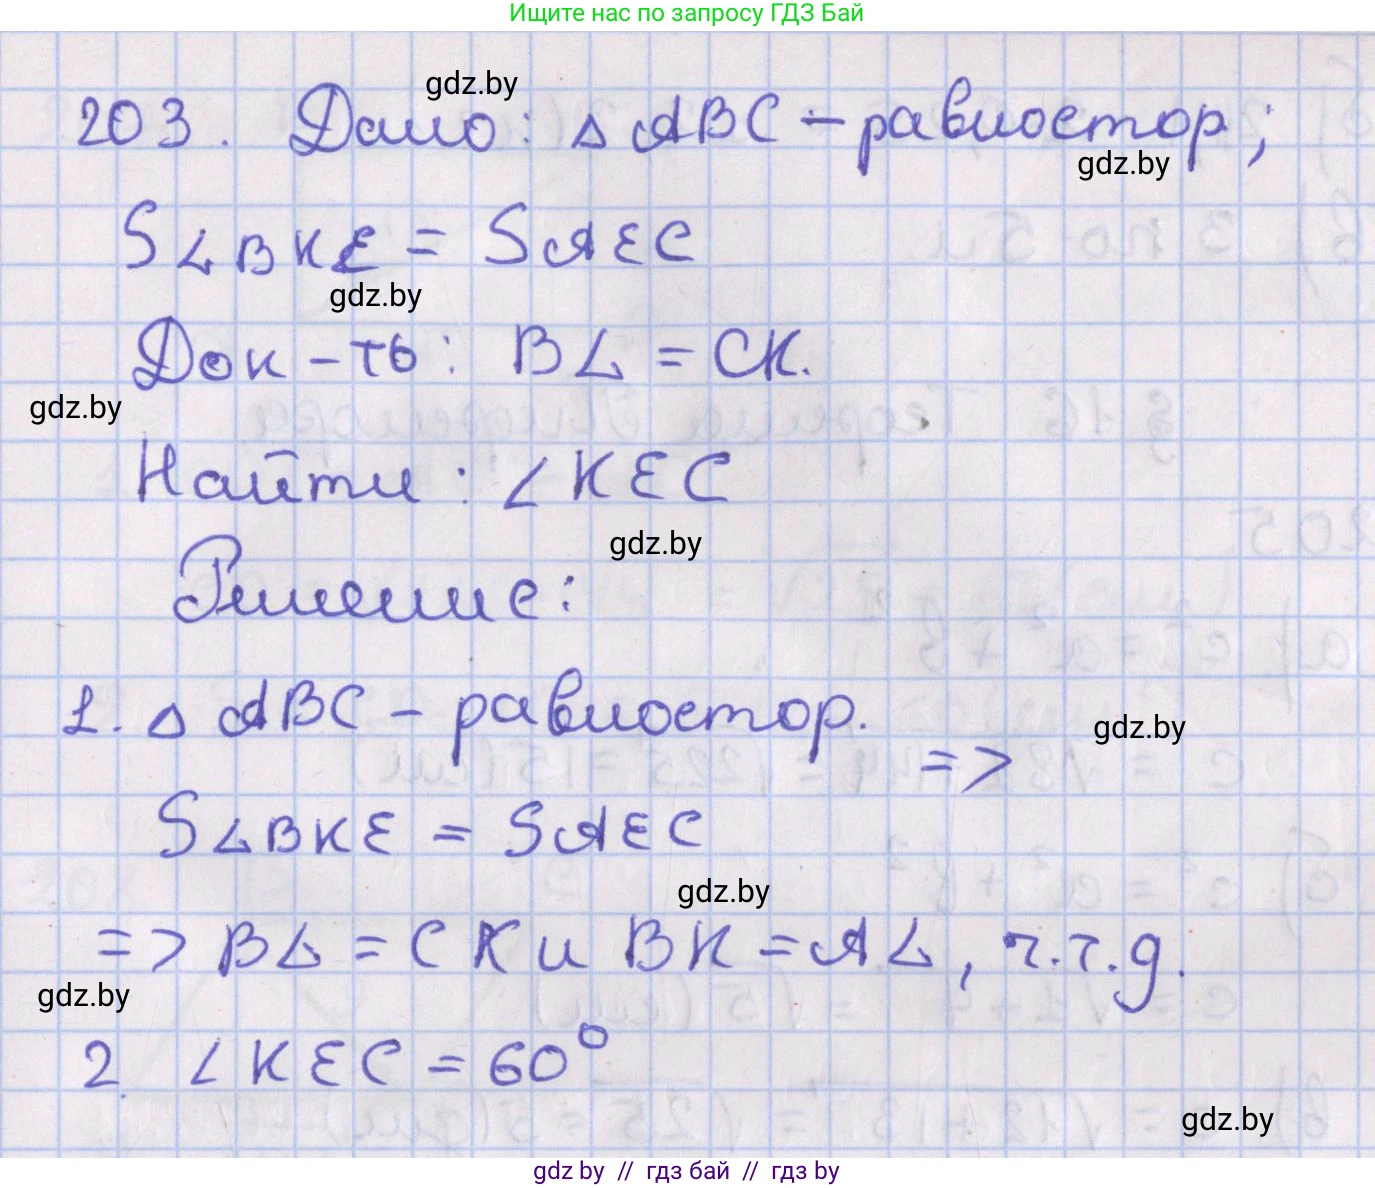 Ищите нас по запросу ГДЗ Бай
gdz.by
203. Дано: △ ABC - равностор;
gdz.by
S∠BKE = SAEC
gdz.by
Док-ть: B∠ = CK.
gdz.by
Найти: ∠KEC
gdz.by
Решение:
1. △ ABC - равностор.
gdz.by
=>
S∠BKE = SAEC
gdz.by
=> B∠ = CK и BK = A∠, ч.т.д.
gdz.by
2. ∠KEC = 60°
gdz.by
gdz by // гдз бай // гдз by